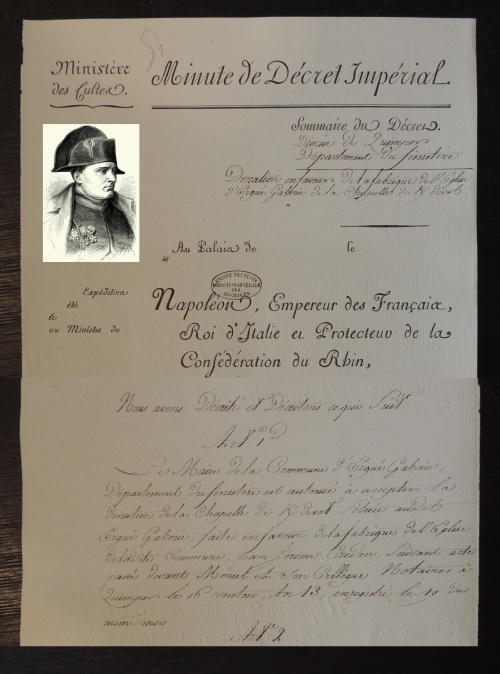 Ministère
des Cultes.
Minute de Décret Impérial.
Sommaire du Décret.
Diocèse de Quimper
Département du finistère
Donation en faveur de la fabrique de l'Eglise
d'Ergué Gaberic de la Chapelle de K/devot
Au Palais de le
Expédition
été
le
au Ministre de
EMPIRE FRANÇAIS
DES
ARCHIVES
Napoléon, Empereur des Français,
Roi d'Italie et Protecteur de la
Confédération du Rhin,
Nous avons Décrété et Décrétons ce qui Suit
Art. 1er
Le Maire de la Commune d'Ergué Gaberic,
Département du finistère est autorisé à accepter la
donation de la Chapelle de K/devot Située audit
Ergué Gaberic, faite en faveur de la fabrique de l'Eglise
de ladite Commune, par Jerome Crédou, Suivant acte
passé devant et Son Collègue Notaires à
Quimper le 16 ventose, An 13, enregistré le 19 du
même mois
Art. 2